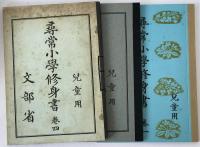 兒童用
尋常小學修身書 卷四
文部省
兒童用
尋常小學修身書
兒童用